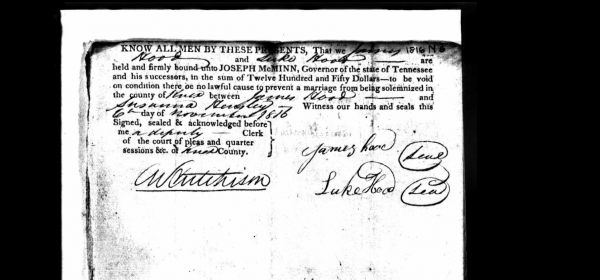 KNOW ALL MEN BY THESE PRESENTS, That we James 1816
Hood and Luke Hood are
held and firmly bound unto JOSEPH McMINN, Governor of the state of Tennessee
and his successors, in the sum of Twelve Hundred and Fifty Dollars—to be void
on condition there be no lawful cause to prevent a marriage from being solemnized in
the county of Knox between James Hood and
Susanna Witness our hands and seals this
6th day of November 1816
Signed, sealed & acknowledged before
me a deputy Clerk
of the court of pleas and quarter
sessions &c. of Knox County.
James hood Seal
Luke Hood Seal
Wm Hutchison